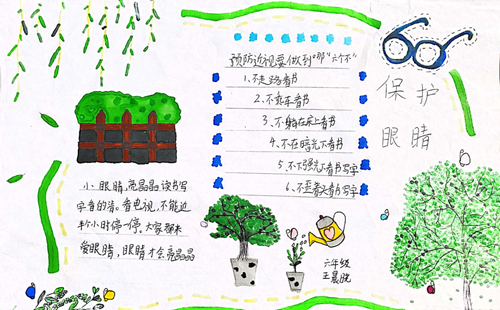 预防近视要做到哪“六个不”
1、不走路看书
2、不乘车看书
3、不躺在床上看书
4、不在暗光下看书
5、不下强光下看书写字
6、不歪着头看书写字
保护
眼睛
小眼睛,亮晶晶,读书写
字看的清。看电视,不能近
半个小时停一停,大家都来
爱眼睛,眼睛才会亮晶晶
六年级
王晨